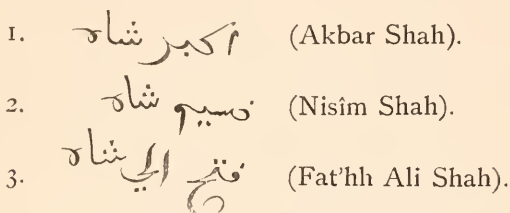 1. اكبر شاه (Akbar Shah).
2. نسيم شاه (Nisîm Shah).
3. فتح الي شاه (Fat'hh Ali Shah).